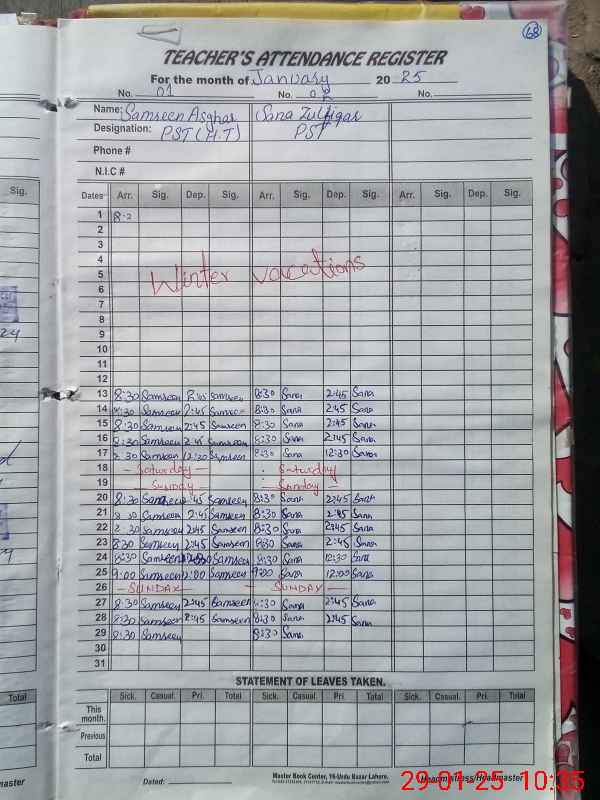 68
TEACHER'S ATTENDANCE REGISTER
For the month of January 2025
No. 01 No. 02 No.
Name: Samreen Asghar Sana Zulfiqar
Designation: PST (H.T) PST
Phone #
N.I.C #
Sig. Dates Arr. Sig. Dep. Sig. Arr. Sig. Dep. Sig. Arr. Sig. Dep. Sig.
1 8:2
2
3
4
5
6
Winter vaccations
7
8
9
10
11
12
13 8:30 Samreen 2:45 Samreen 8:30 Sana 2:45 Sana
14 8:30 Samreen 2:45 Samreen 8:30 Sana 2:45 Sana
15 8:30 Samreen 2:45 Samreen 8:30 Sana 2:45 Sana
16 8:30 Samreen 2:45 Samreen 8:30 Sana 2:45 Sana
17 8:30 Samreen 12:30 Samreen 8:30 Sana 12:30 Sana
18 - Saturday - Saturday
19 - SUNDAY - - Sunday -
20 8:30 Samreen 2:45 Samreen 8:30 Sana 2:45 Sana
21 8:30 Samreen 2:45 Samreen 8:30 Sana 2:45 Sana
22 8:30 Samreen 2:45 Samreen 8:30 Sana 2:45 Sana
23 8:30 Samreen 2:45 Samreen 8:30 Sana 2:45 Sana
24 8:30 Samreen Samreen 8:30 Sana 12:30 Sana
25 9:00 Samreen 12:00 Samreen 9:00 Sana 12:00 Sana
26 - SUNDAY - - SUNDAY -
27 8:30 Samreen 2:45 Samreen 8:30 Sana 2:45 Sana
28 8:30 Samreen 2:45 Samreen 8:30 Sana 2:45 Sana
29 8:30 Samreen 8:30 Sana
30
31
STATEMENT OF LEAVES TAKEN.
Total Sick. Casual. Pri. Total Sick. Casual. Pri. Total Sick. Casual. Pri. Total
This month.
Previous
Total
Master Book Center, 16-Urdu Bazar Lahore.
Dated: Headmistress/Headmaster
29-01-25 10:35